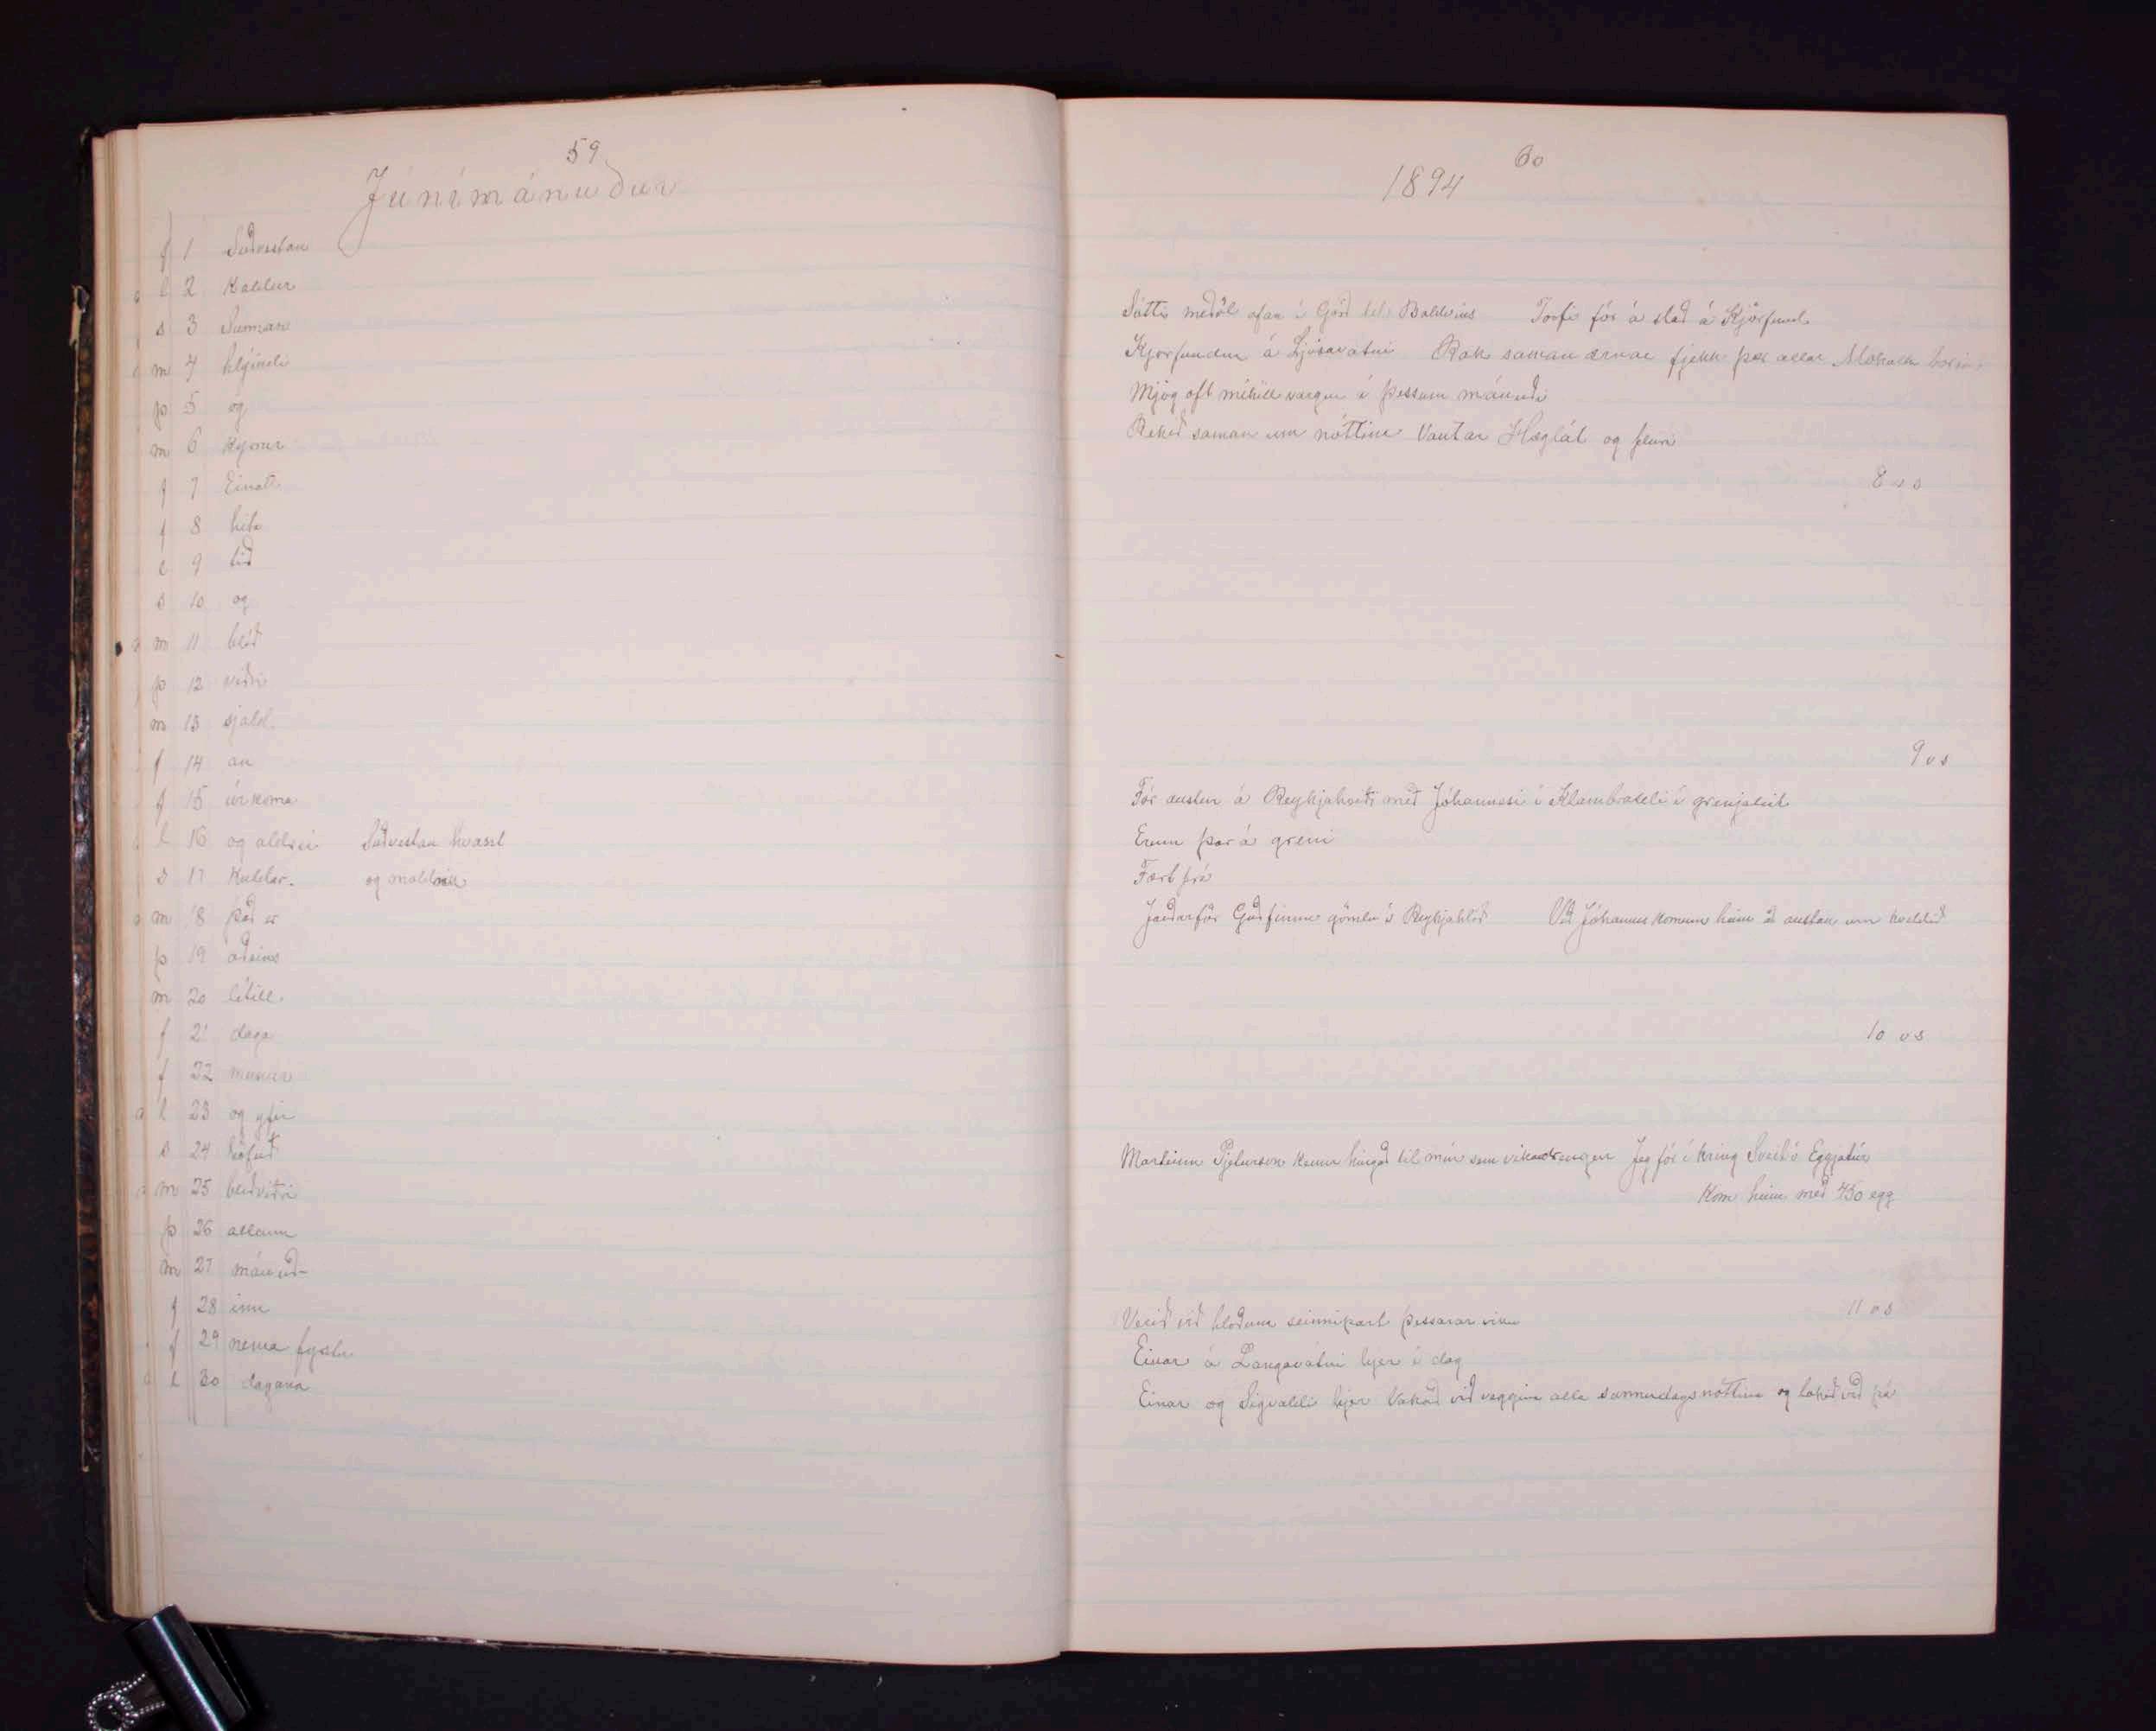 59
Júnímánuður
f 1 Suðvestan
l 2 Kaldur
s 3 Sunnan
m 4 hlýindi
þ 5 og
m 6 kyrrur
f 7 Einatt
f 8 hita
l 9 tíð
s 10 og
m 11 blíð
þ 12 viðri
m 13 sjald
f 14 an
f 15 úrkoma
l 16 og aldrei Suðvestan hvasst
s 17 Kuldar. og moldrok
m 18 það er
þ 19 aðeins
m 20 lítill
f 21 daga
f 22 munur
l 23 og yfir
s 24 höfuð
m 25 blíðviðri
þ 26 allann
m 27 mánuð-
f 28 inn
f 29 nema fystu
l 30 dagana
60
1894
Sótti meðöl ofan í Garð til Baldvins Torfi fór á stað á Kjörfund
Kjörfundur á Ljósavatni Rak saman ærnar fjekk þar allar
Mjög oft mikill vargur í þessum mánuði
Rekið saman um nóttina Vantar Hæglát og fleiri
8 v s
9 v s
Fór austur á Reykjaheiði með Jóhannesi í Klambraseli í grenjaleit
Erum þar á greni
Fært frá
Jarðarför Guðfinnu gömlu í Reykjahlíð Við Jóhannes komum heim að austan um kveldið
10 v s
Marteinn Pjetursson kemur hingað til mín sem vikadrengur Jeg fór í kring Sveit í Eggjatúr
Kom heim með 450 egg
Verið við hlöðuna seinnipart þessarar viku 11 v s
Einar á Langavatni hjer í dag
Einar og Sigvaldi hjer Vakað við veggina alla sunnudagsnóttina og lokið við þá